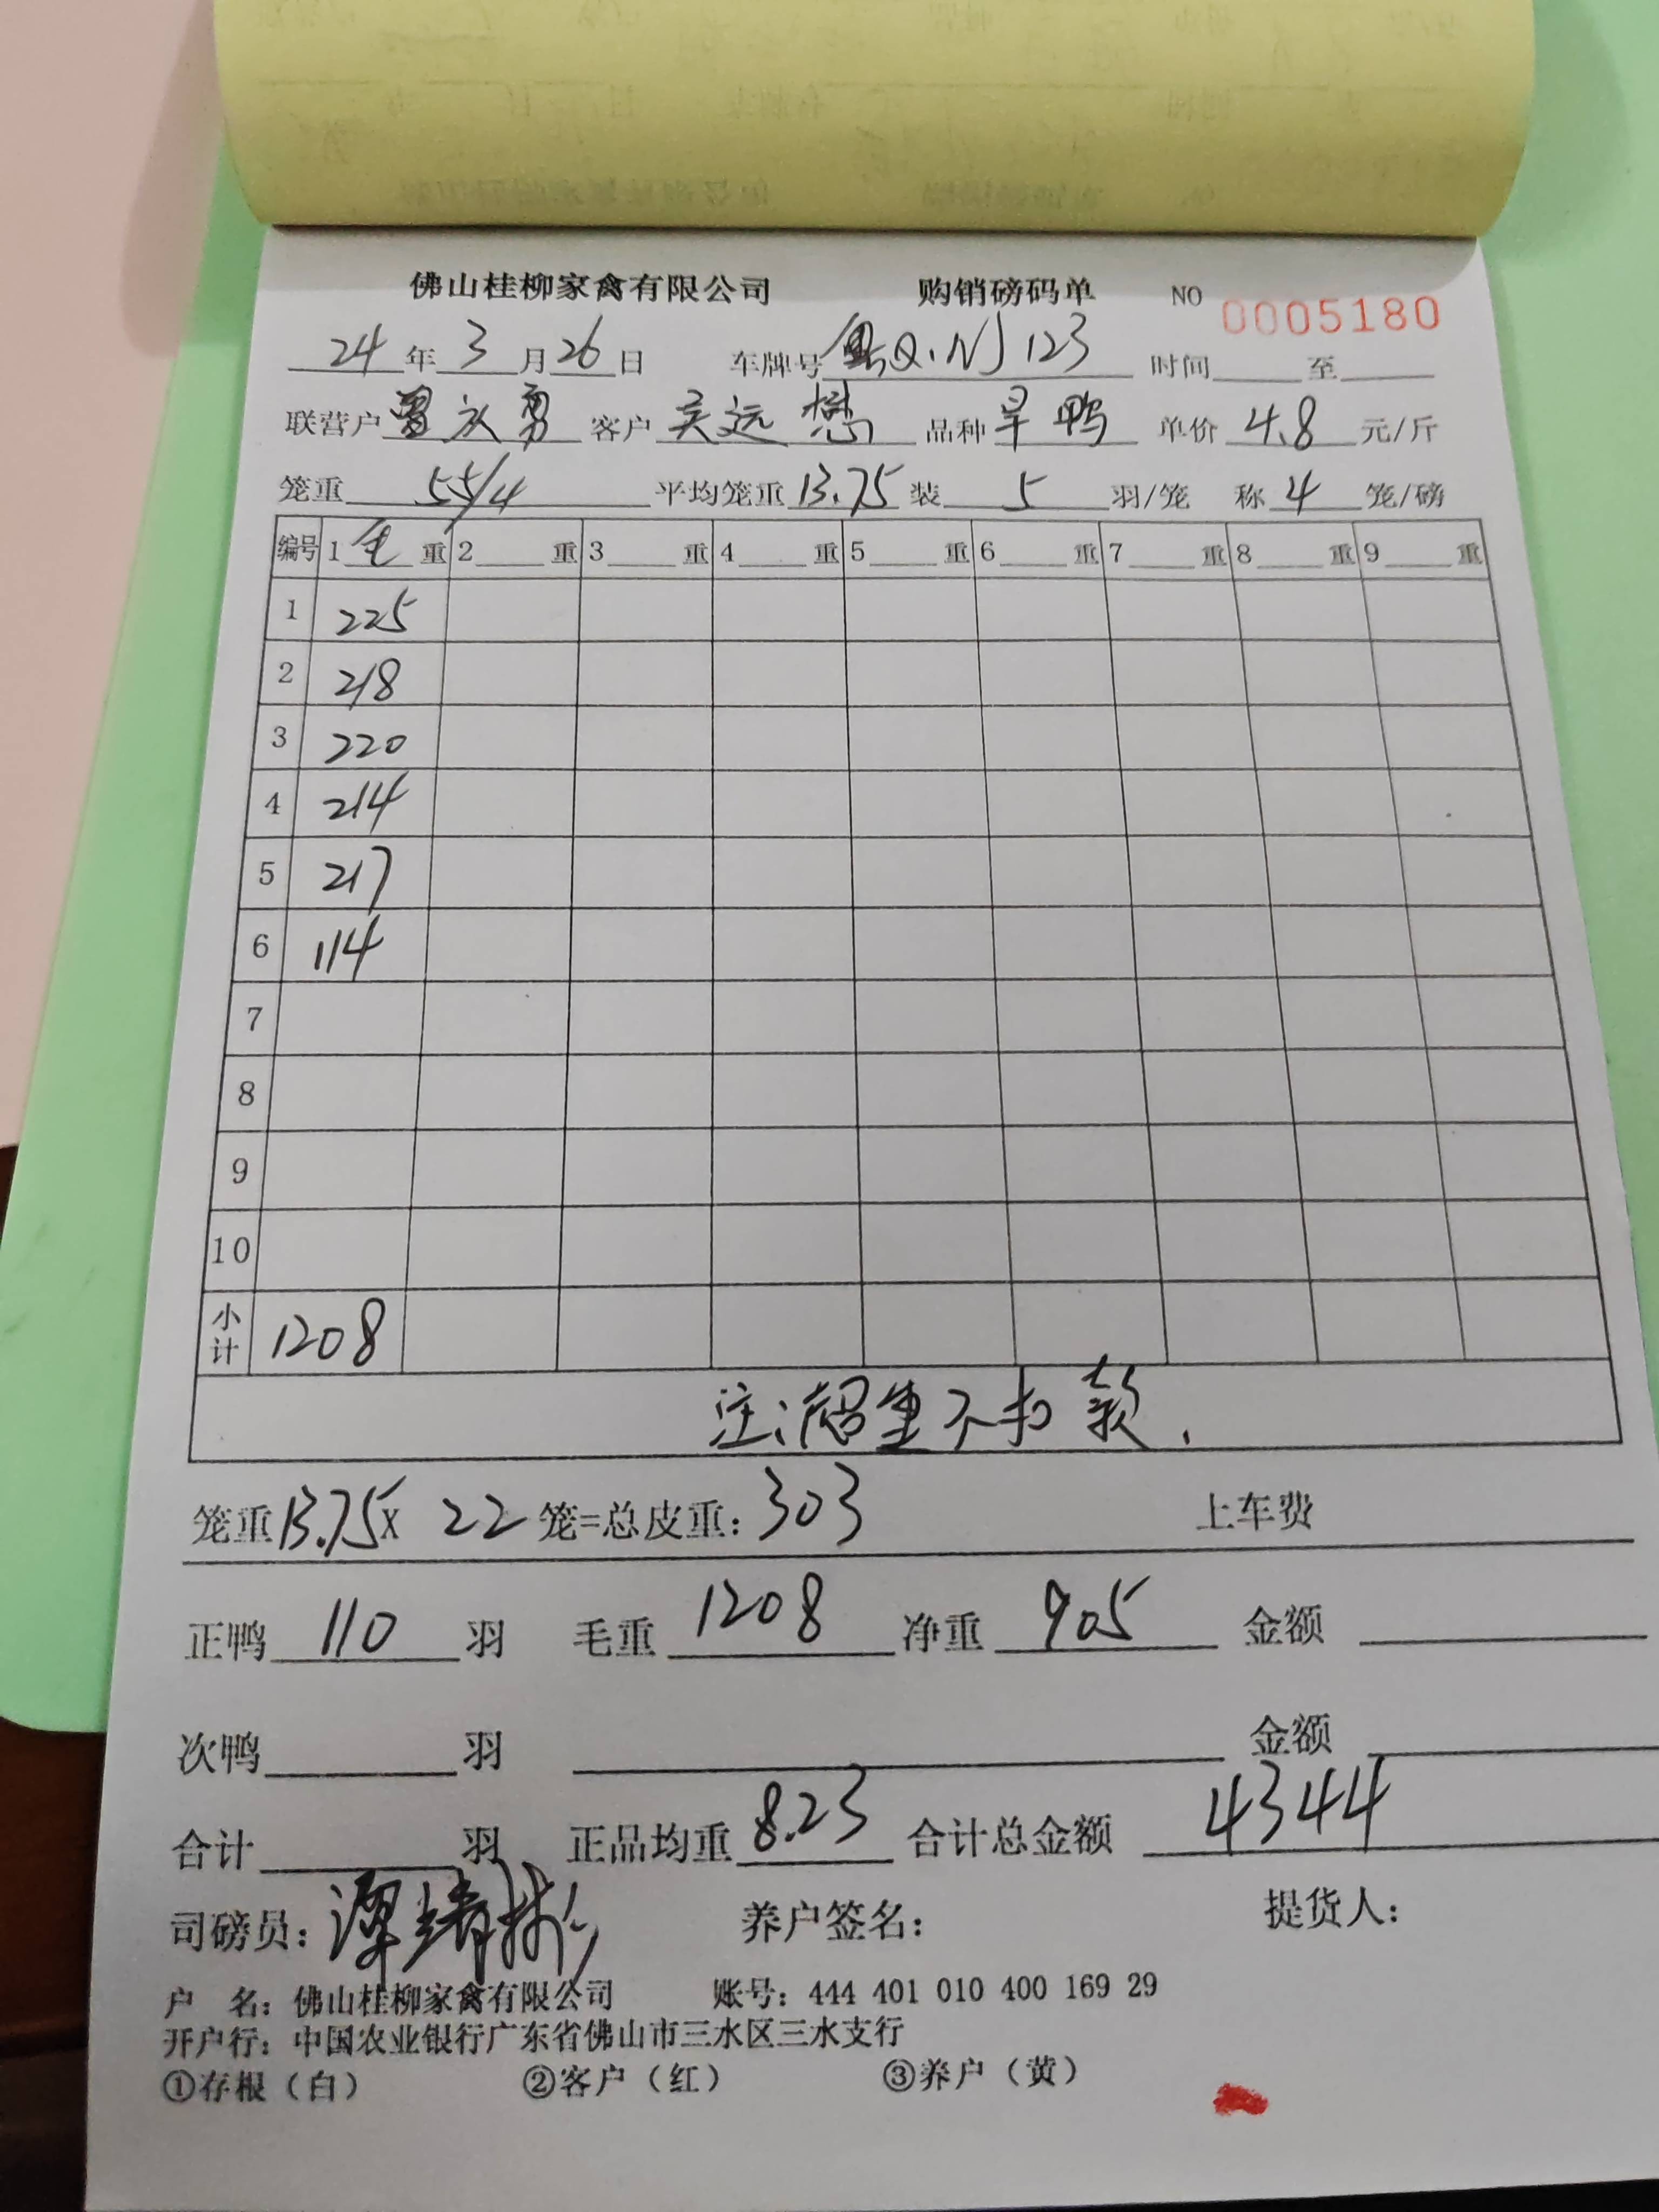 佛山桂柳家禽有限公司 购销磅码单 NO 0005180
24年3月26日 车牌号 Q·NJ123 时间 至
联营户 客户 吴远懋 品种 旱鸭 单价 4.8 元/斤
笼重 55/4 平均笼重 13.75 装 5 羽/笼 称 4 笼/磅
编号 1 毛 重 2 重 3 重 4 重 5 重 6 重 7 重 8 重 9 重
1 225
2 218
3 220
4 214
5 217
6 114
7
8
9
10
小计 1208
注:超重不扣款.
笼重13.75x 22 笼=总皮重: 303 上车费
正鸭 110 羽 毛重 1208 净重 905 金额
次鸭 羽 金额
合计 羽 正品均重 8.23 合计总金额 4344
司磅员: 养户签名: 提货人:
户 名: 佛山桂柳家禽有限公司 账号: 444 401 010 400 169 29
开户行: 中国农业银行广东省佛山市三水区三水支行
①存根(白) ②客户(红) ③养户(黄)